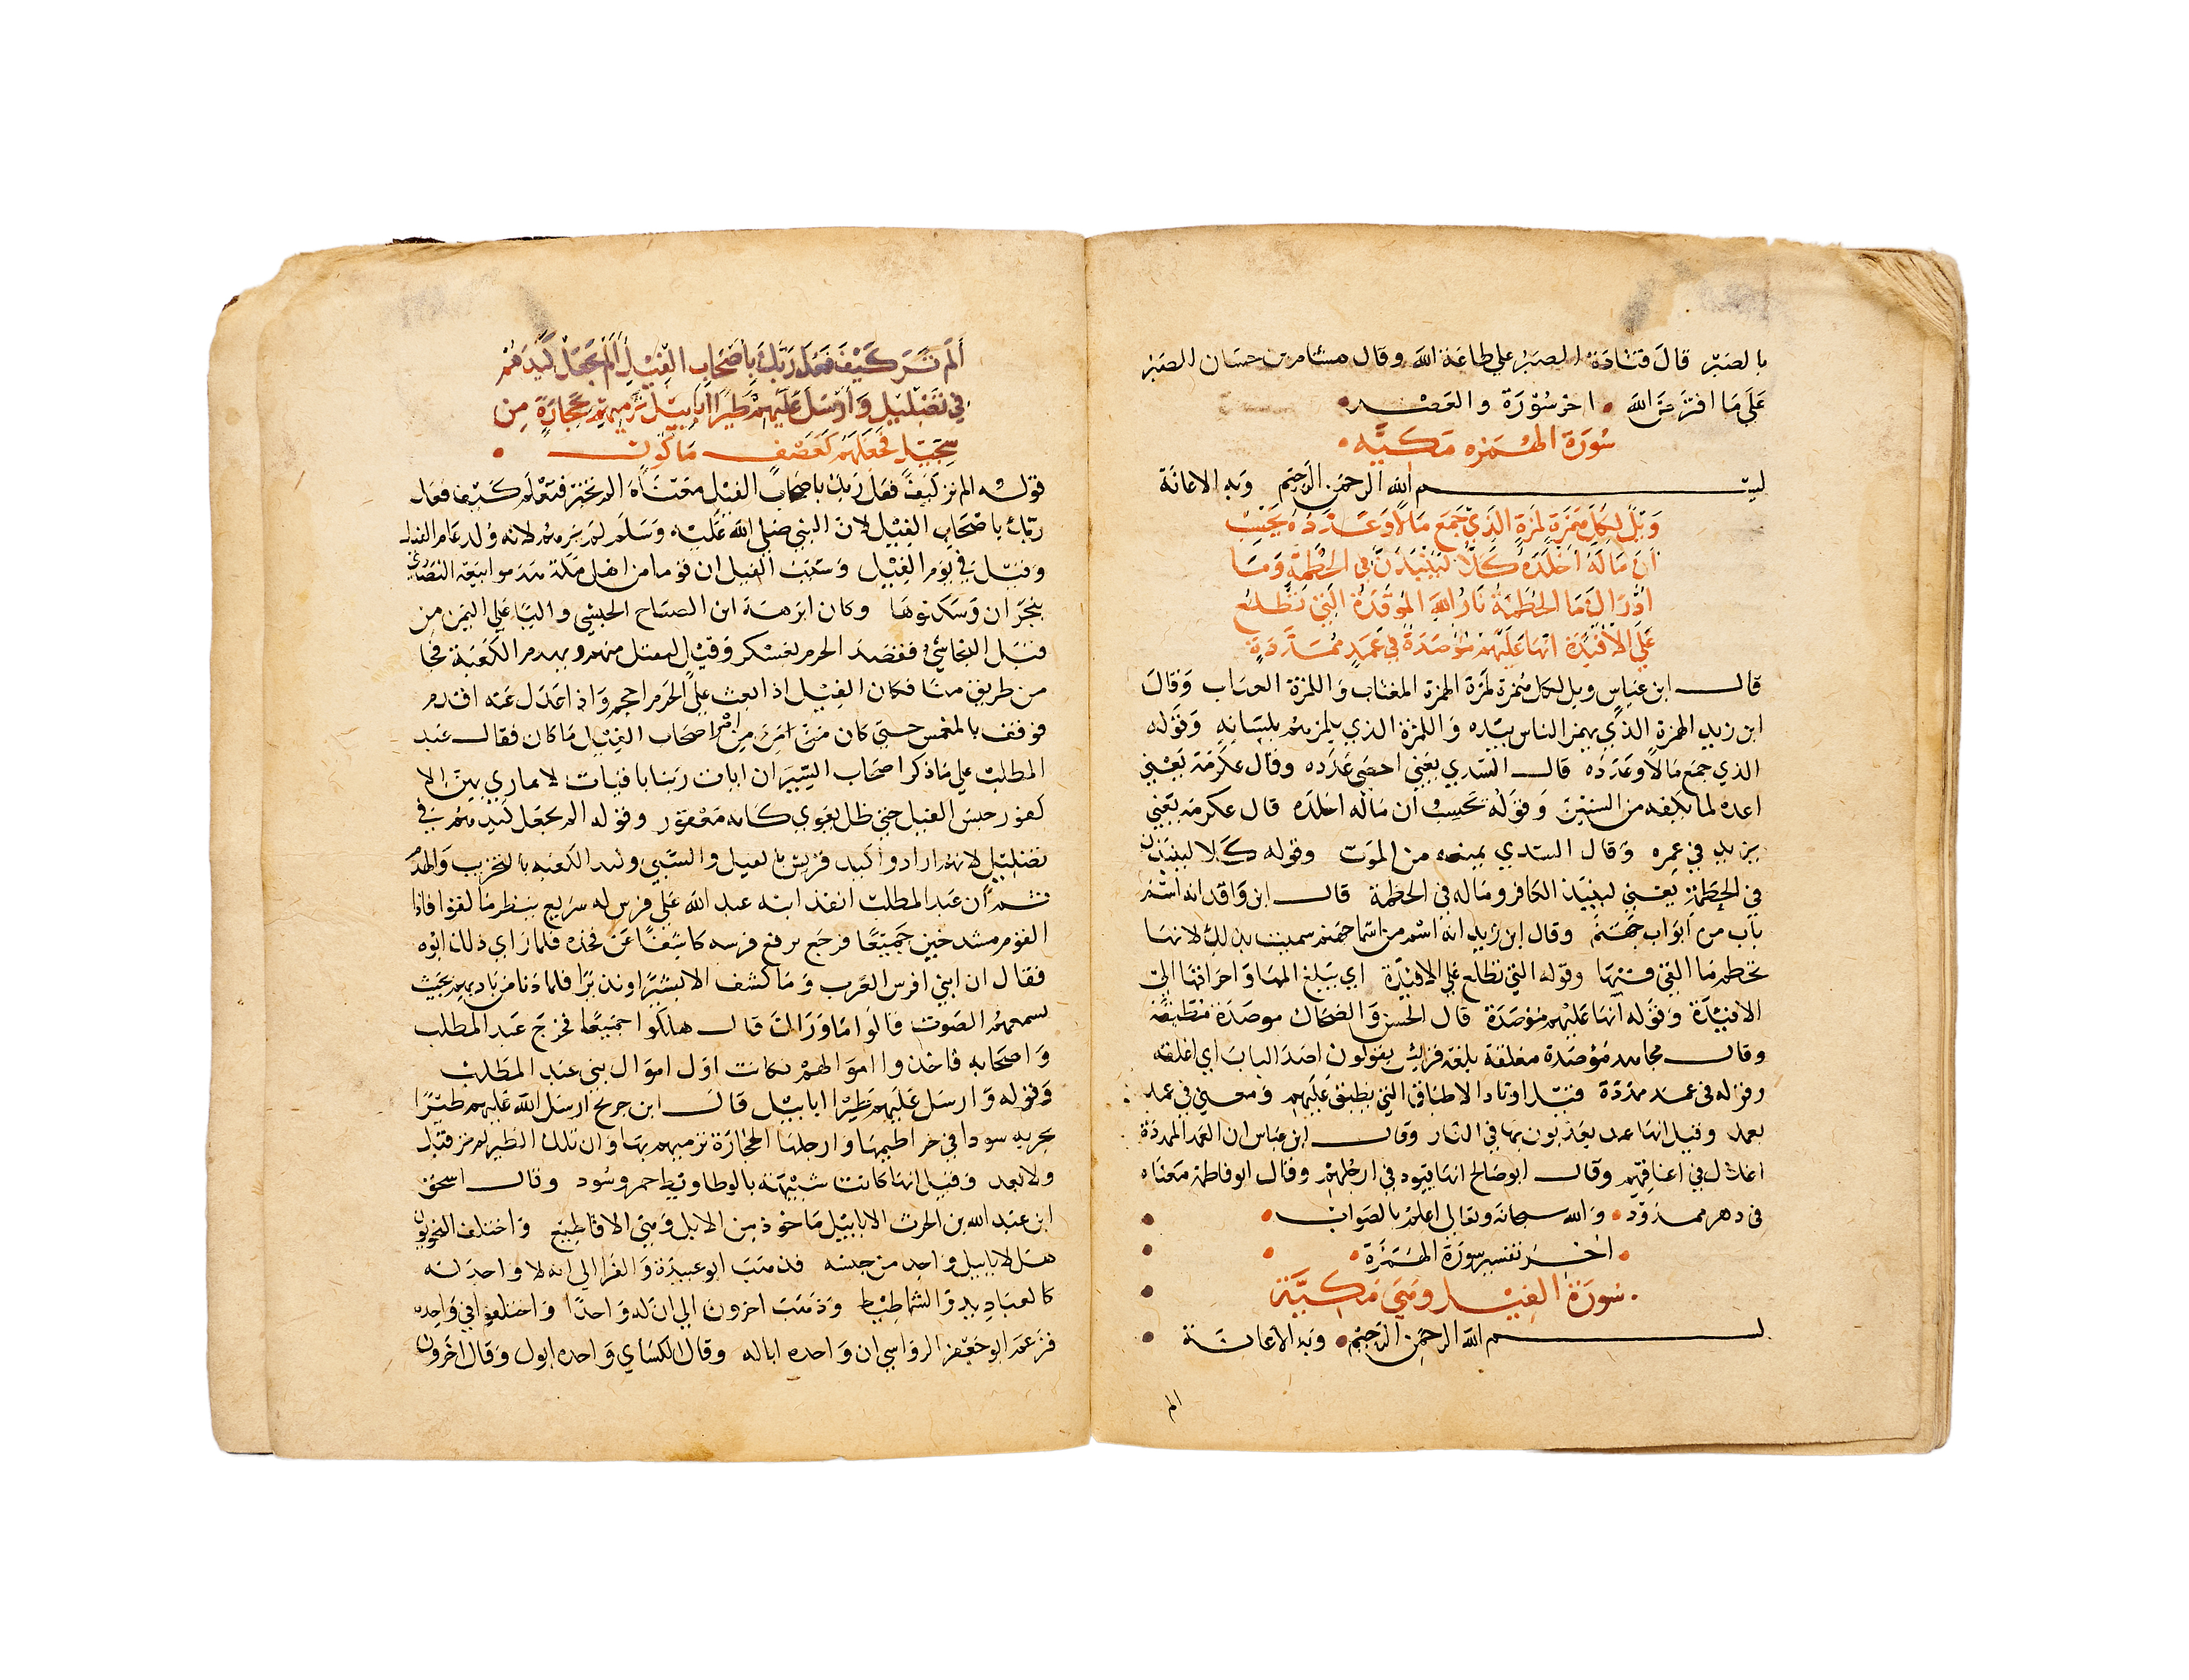 بالصبر قال قتادة الصبر علي طاعة الله وقال هشام بن حسان الصبر
علي ما افترض الله اخر سورة والعصر
سورة الهمزه مكيه
بسم الله الرحمن الرحيم وبه الاعانة
ويل لكل همزة لمزة الذي جمع مالا وعدده يحسب
ان ماله اخلده كلا لينبذن في الحطمة وما
ادراك ما الحطمة نار الله الموقدة التي تطلع
علي الافئدة انها عليهم موصدة في عمد ممددة
قال ابن عباس ويل لكل همزة لمزة الهمزة المغتاب واللمزة العياب وقال
ابن زيد الهمزة الذي يهمز الناس بيده واللمزة الذي يلمزهم بلسانه وقوله
الذي جمع مالا وعدده قال السدي يعني احصي عدده وقال عكرمة يعني
اعده لما يكفيه من السنين وقوله يحسب ان ماله اخلده قال عكرمة يعني
يزيد في عمره وقال السدي يمنعه من الموت وقوله كلا لينبذن
في الحطمة يعني لينبذن الكافر وماله في الحطمة قال ابن واقد انه اسم
باب من ابواب جهنم وقال ابن زيد انه اسم من اسما جهنم سميت بذلك لانها
تحطم ما القي فيها وقوله التي تطلع علي الافئدة اي يبلغ المها واحراقها الي
الافئدة وقوله انها عليهم موصدة قال الحسن والضحاك موصدة مطبقة
وقال مجاهد موصدة مغلقة بلغة قريش يقولون اصد الباب اي اغلقه
وقوله في عمد ممددة قيل اوتاد الاطباق التي تطبق عليهم ومعني في عمد
بعمد وقيل انها عمد يعذبون بها في النار وقال ابن عباس ان العمد الممددة
اغلال في اعناقهم وقال ابو صالح انها قيود في ارجلهم وقال ابو فاطمة معناه
في دهر ممدود والله سبحانه وتعالي اعلم بالصواب
اخر تفسير سورة الهمزة
سورة الفيل وهي مكية
بسم الله الرحمن الرحيم وبه الاعانة
الم
الم تر كيف فعل ربك باصحاب الفيل الم يجعل كيدهم
في تضليل وارسل عليهم طيرا ابابيل ترميهم بحجارة من
سجيل فجعلهم كعصف ماكول
قوله الم تر كيف فعل ربك باصحاب الفيل معناه الم تخبر فتعلم كيف فعل
ربك باصحاب الفيل لان النبي صلي الله عليه وسلم لم يرهم لانه ولد عام الفيل
وقيل في يوم الفيل وسبب الفيل ان قوما من اهل مكة هدموا بيعة النصاري
بنجران وسكنوها وكان ابرهة ابن الصباح الحبشي واليا علي اليمن من
قبل النجاشي فقصد الحرم بعسكر وقيل ليقتل منهم ويهدم الكعبة فجا
من طريق منا فكان الفيل اذا بعث علي الحرم احجم واذا عدل عنه اقدم
فوقف بالمغمس حتي كان من امره من امر اصحاب الفيل ما كان فقال عبد
المطلب علي ما ذكر اصحاب السير ان ايات ربنا باقيات لا يماري بهن الا
كفور حبس الفيل حتي ظل يعوي كانه معقور وقوله الم يجعل كيدهم في
تضليل لانهم ارادوا كيد قريش بالقتل والسبي وكيد الكعبه بالتخريب والهدم
ثم ان عبد المطلب انفذ ابنه عبد الله علي فرس له سريع ينظر ما لقوا فاذا
القوم مشدخين جميعا فرجع يرفع فرسه كاشفا عن فخذه فلما راي ذلك ابوه
فقال ان ابني افرس العرب وما كشف الا بشيرا او نذيرا فلما دنا من ناديهم بحيث
يسمعهم الصوت قالوا ما وراك قال هلكوا جميعا فخرج عبد المطلب
واصحابه فاخذوا اموالهم فكانت اول اموال بني عبد المطلب
وقوله وارسل عليهم طيرا ابابيل قال ابن جريج ارسل الله عليهم طيرا
بحريه سودا في خراطيمها وارجلها الحجارة ترميهم بها وان تلك الطير لم تر قبل
ولا بعد وقيل انها كانت شبيهة بالوطاويط حمر وسود وقال اسحق
ابن عبد الله بن الحرث الابابيل ماخوذ من الابل وهي الاقاطيع واختلف النحويون
هل لابابيل واحد من جنسه فذهب ابو عبيدة والفرا الي انه لا واحد له
كالعباديد والشماطيط وذهب اخرون الي ان له واحدا واختلفوا في واحده
فزعم ابو جعفر الرواسي ان واحده اباله وقال الكساي واحده ابول وقال اخرون